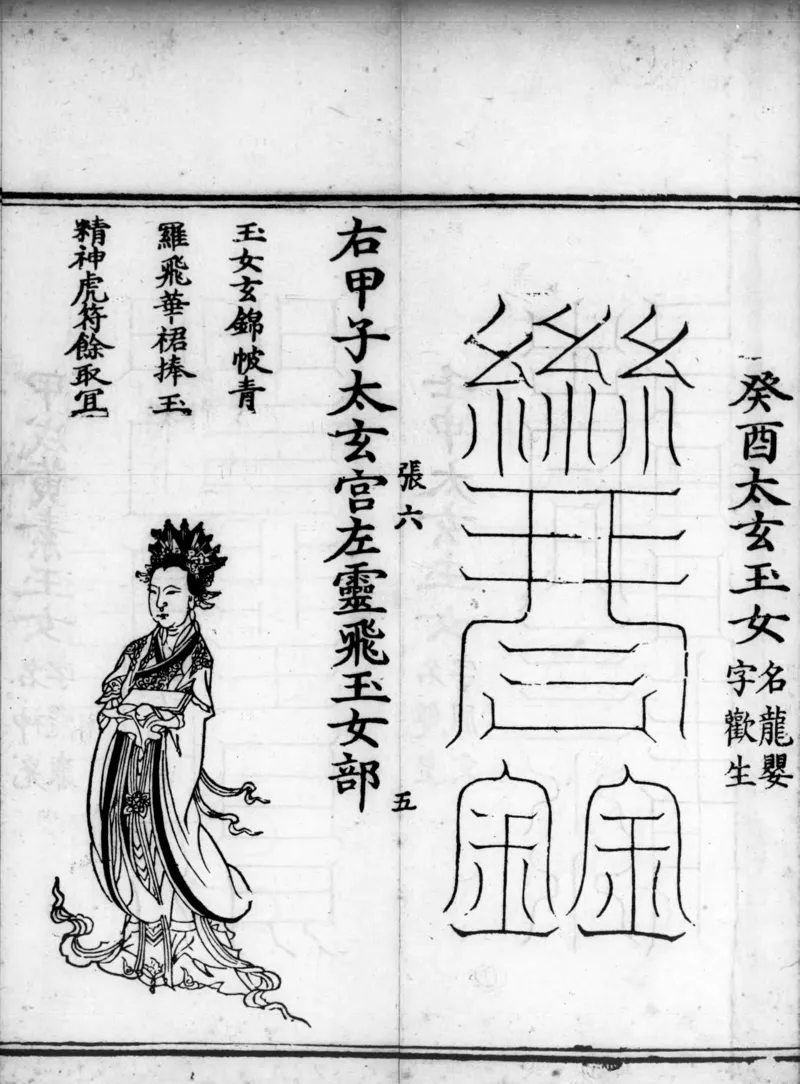 癸酉太玄玉女
名龍嬰
字歡生
張六
五
右甲子太玄宮左靈飛玉女部
玉女玄錦帔青
羅飛華裙捧玉
精神虎符餘取冝